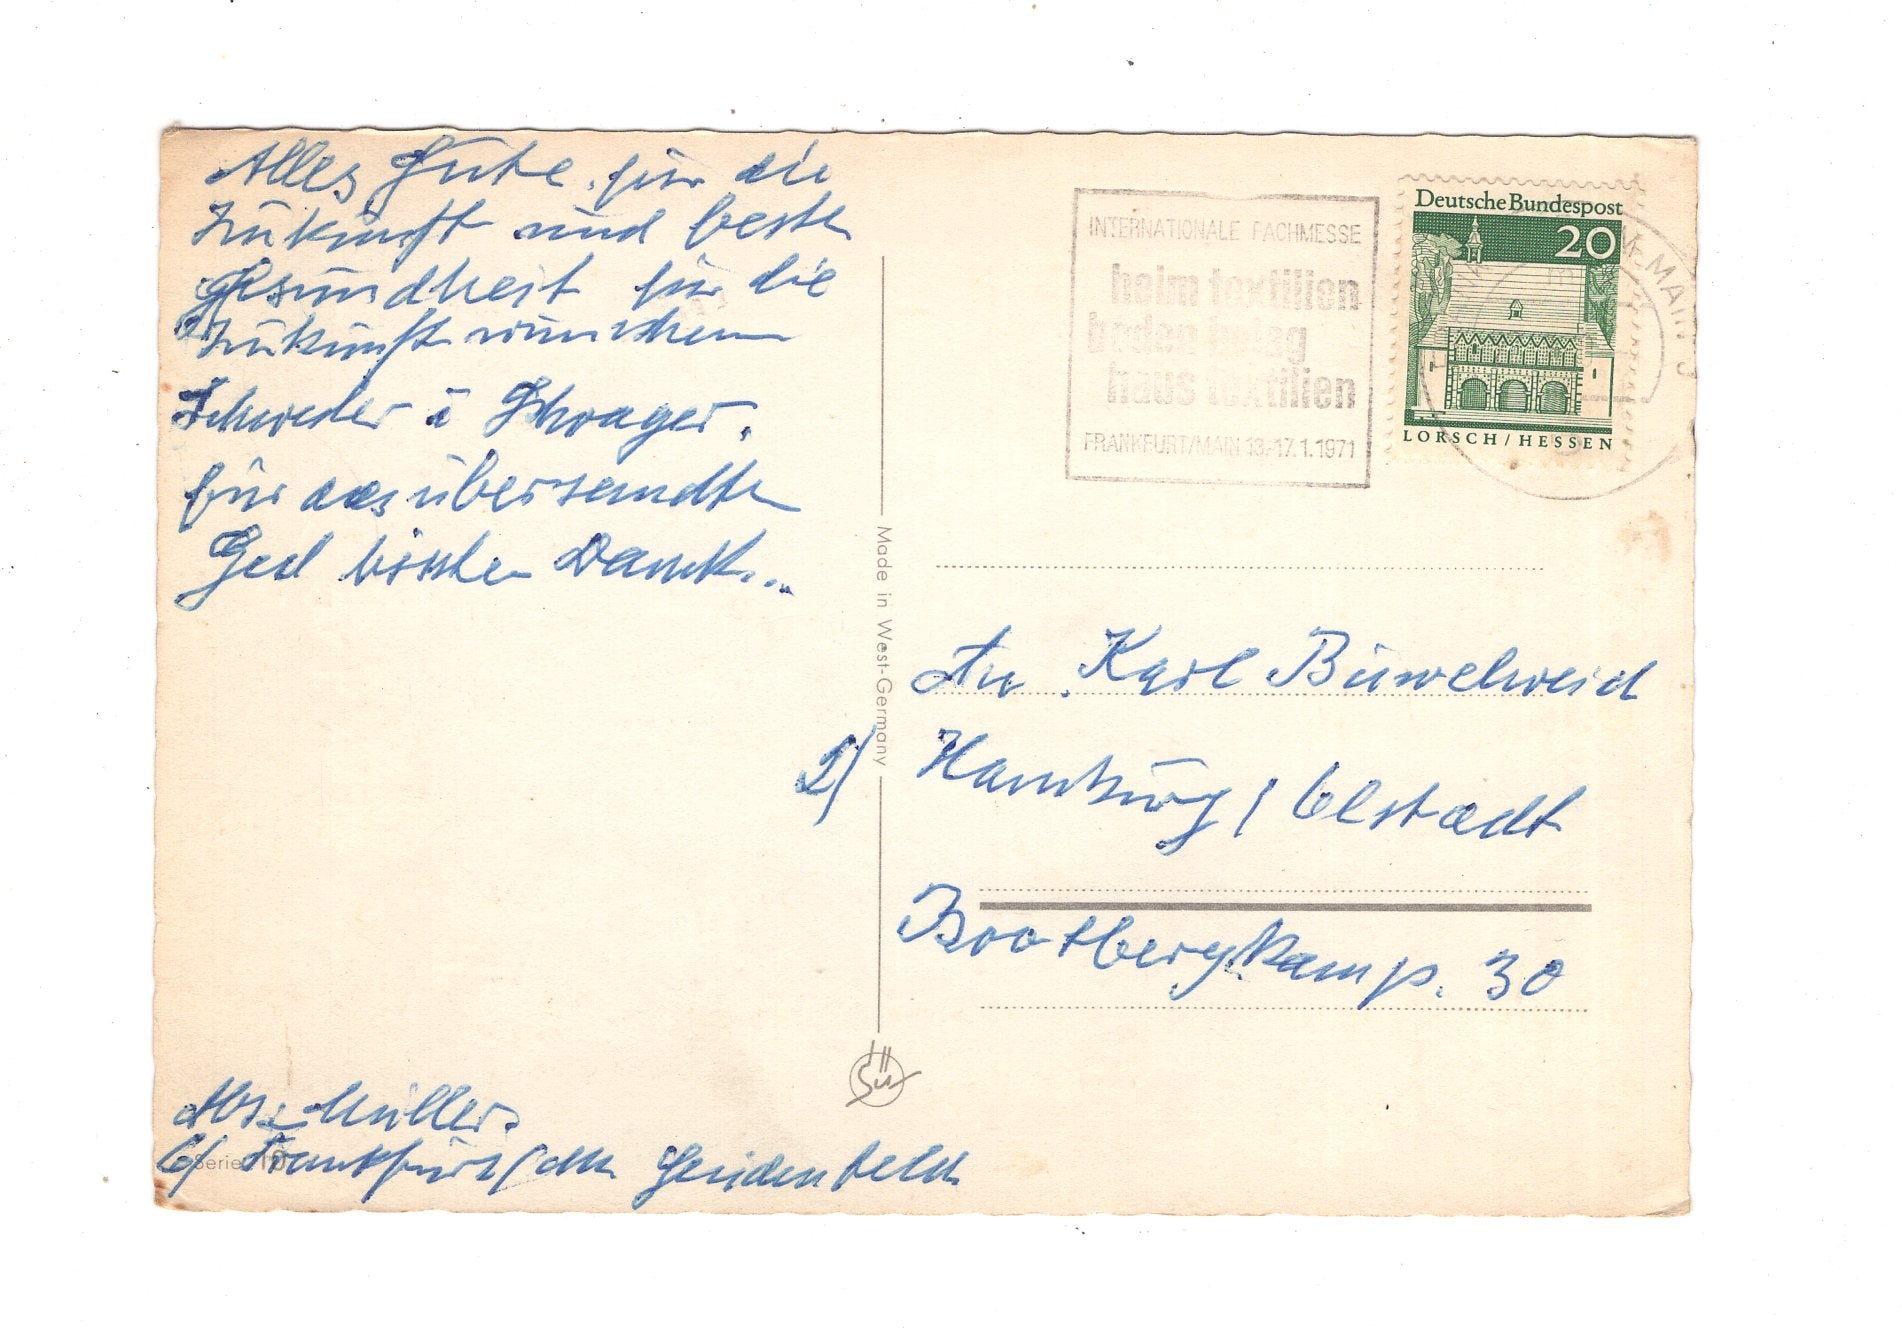 Alles Gute für die
Zukunft und beste
Gesundheit für die
Zukunft wünschen
Schwester u Schwager.
für das übersandte
Geld besten Dank...
Abs. Müller.
6/ Frankfurt/M
Serie 10
Made in West-Germany
INTERNATIONALE FACHMESSE
heim textilien
boden belag
haus textilien
FRANKFURT/MAIN 13.-17.1.1971
Deutsche Bundespost
20
LORSCH/HESSEN
An Karl
2)
Hamburg /
Bootbergkamp. 30